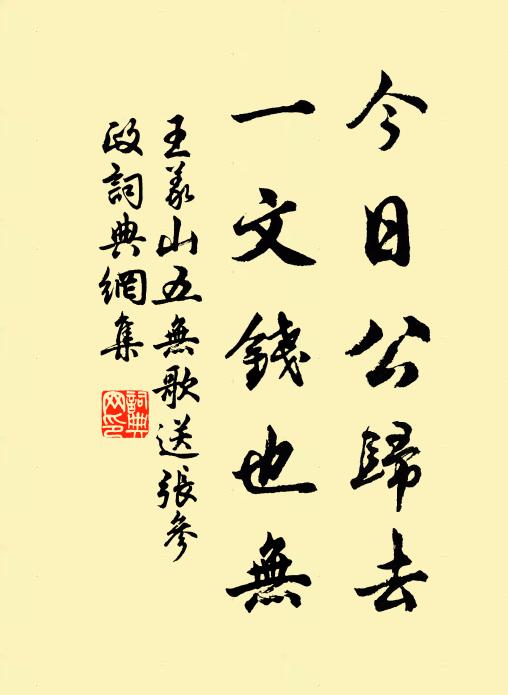 今日公歸去
一文錢也無
王義山五無歌送張參
政詞典網集
詞典
网印